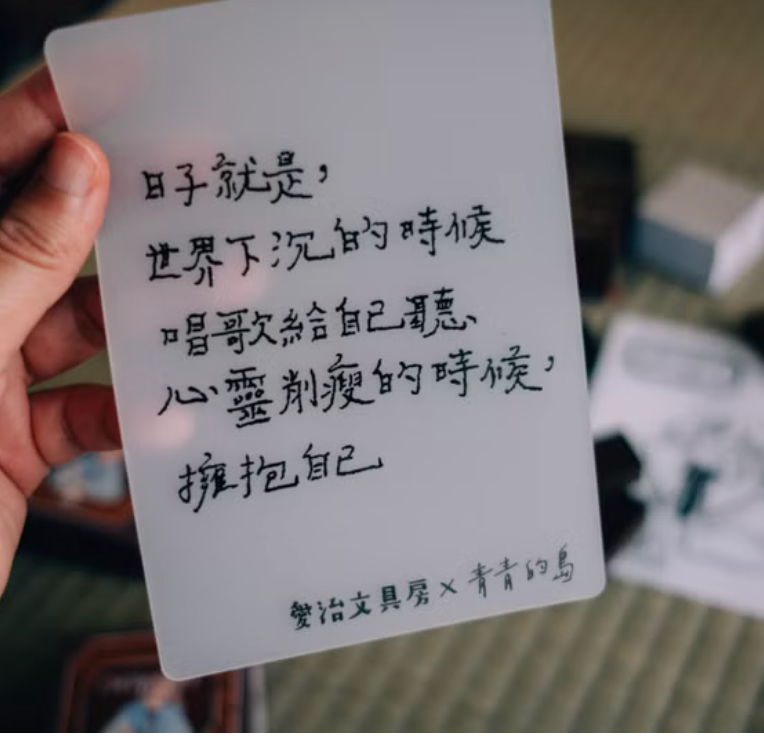 日子就是，
世界下沉的時候
唱歌給自己聽
心靈削瘦的時候，
擁抱自己
愛治文具房 x 青青的島